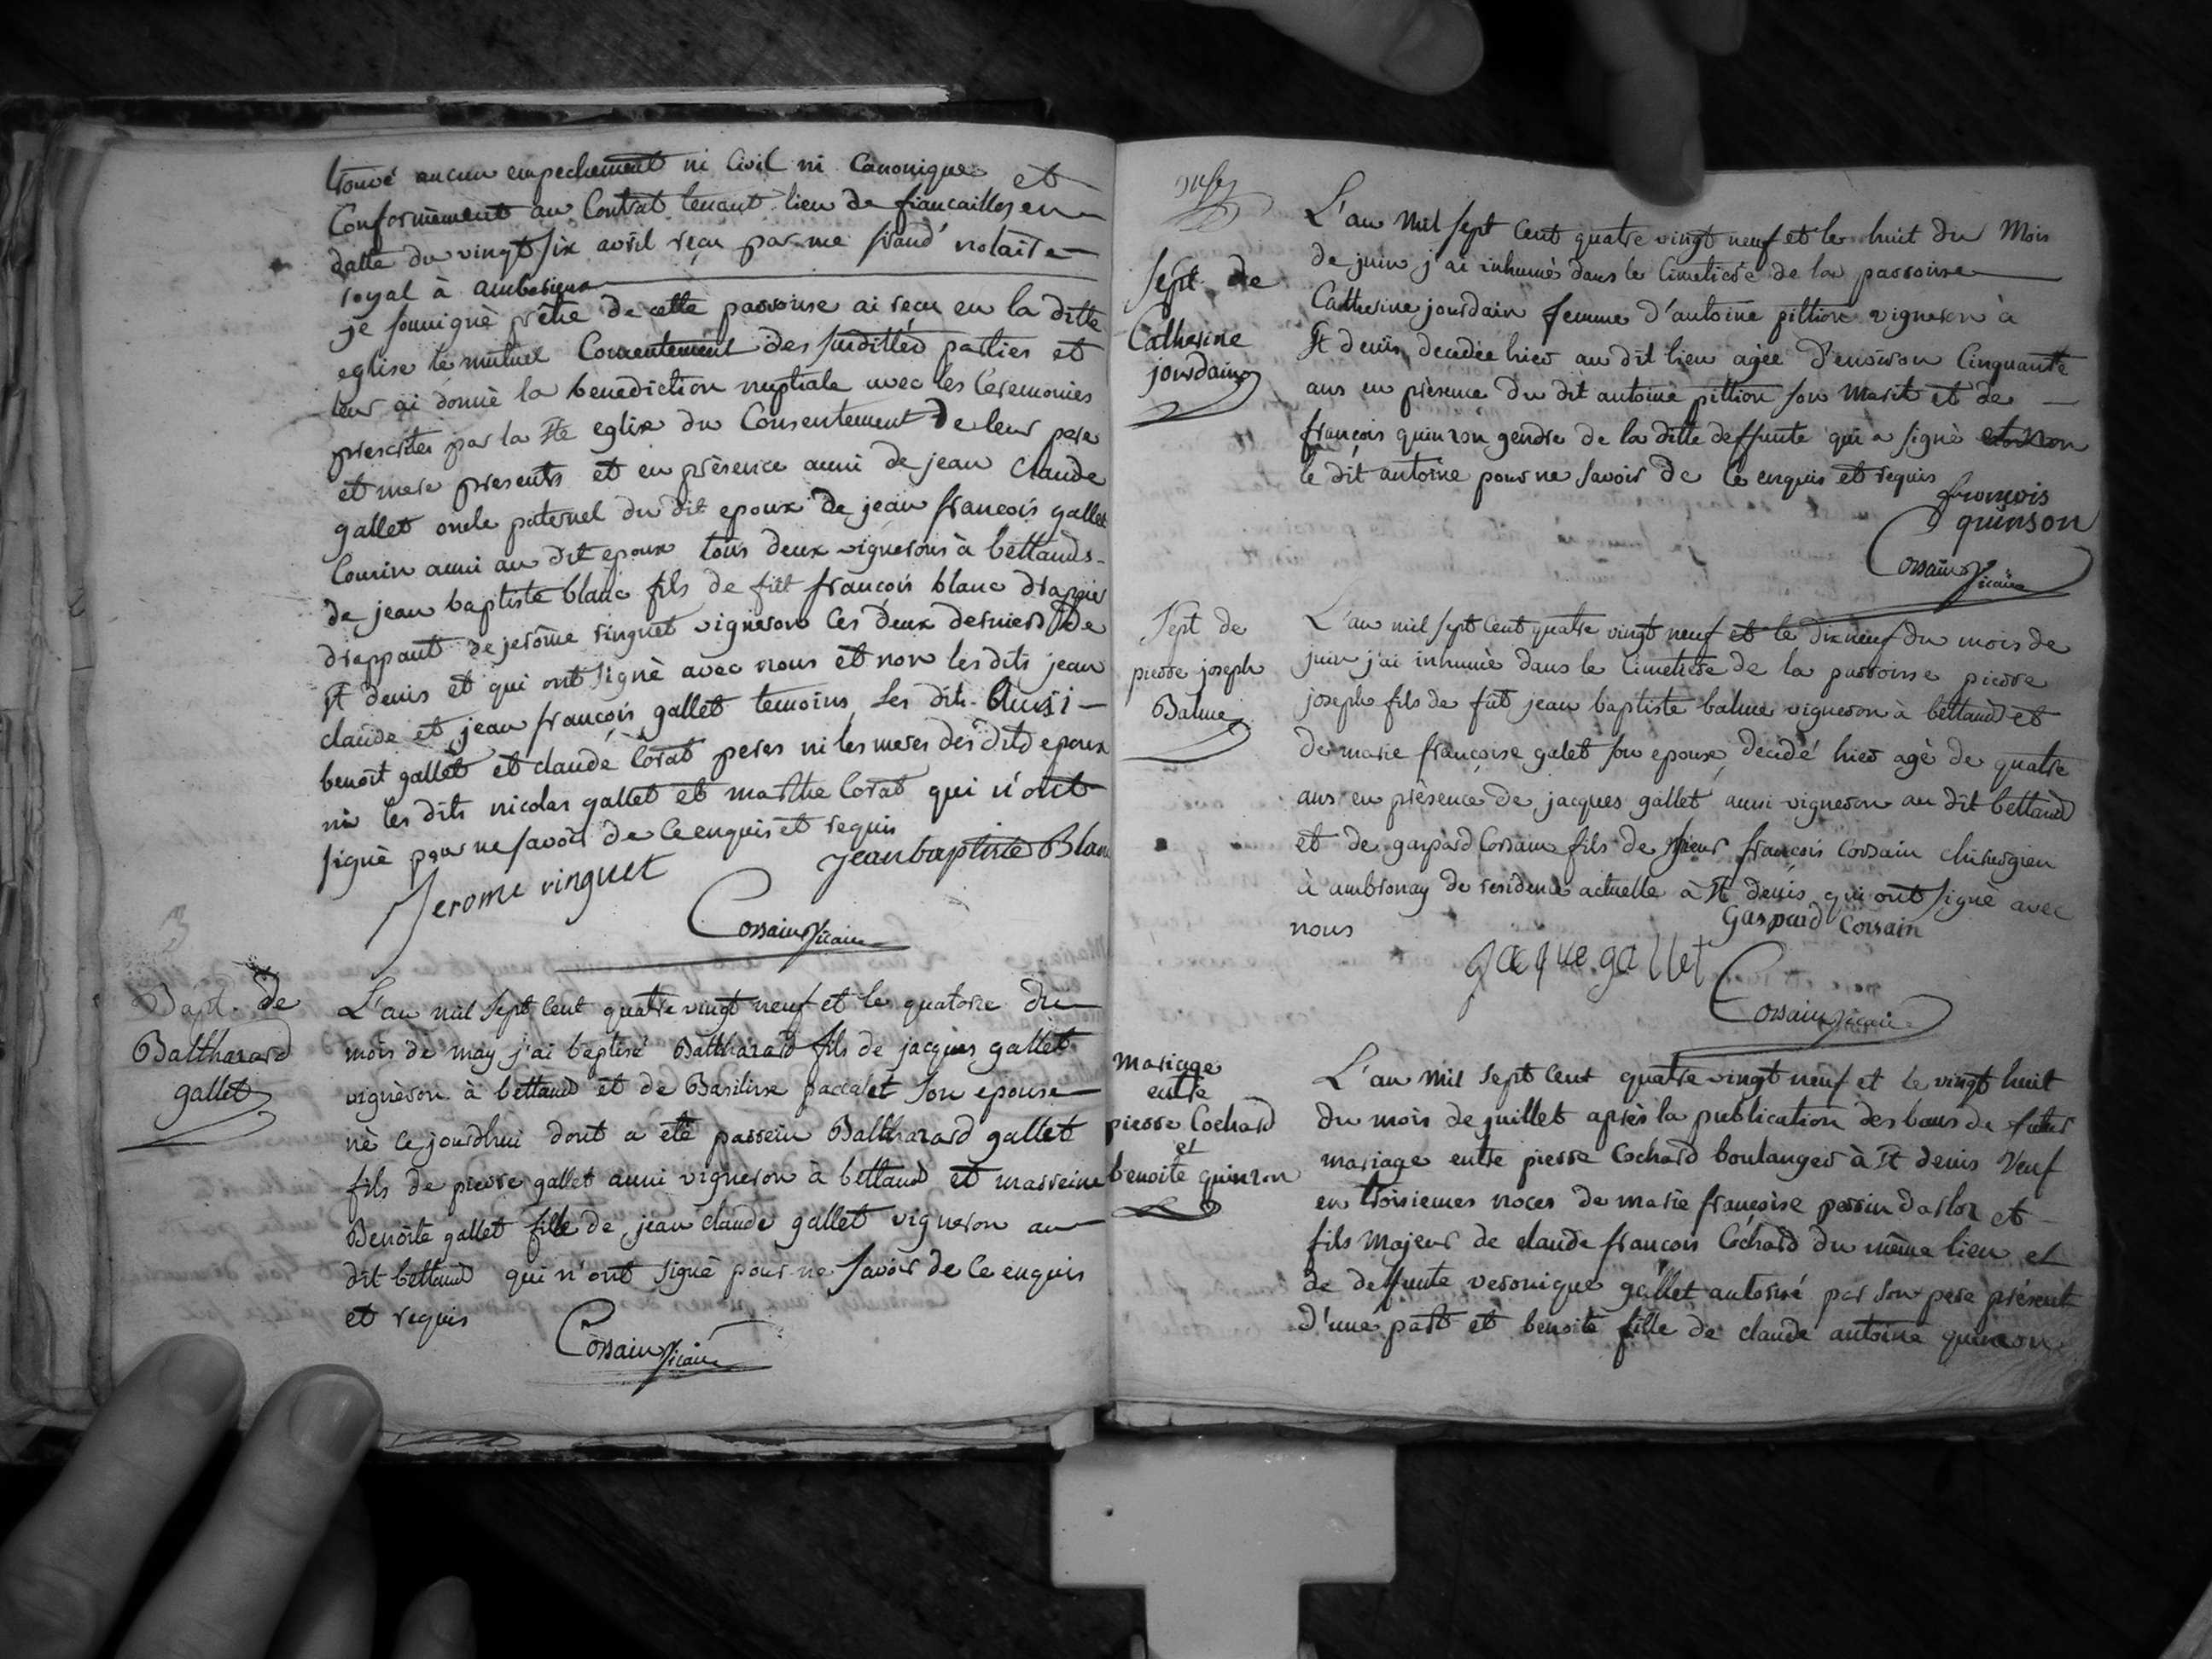 trouvé aucun empechement ni Civil ni Canonique et
Conformèment au Contrat tenant lieu de fiancailles en
datte du vingt six avril reçu par me notaire
royal à
je soussigné prêtre de cette parroisse ai reçu en la ditte
eglise le mutuel Consentement des sudittes parties et
leur ai donnè la benediction nuptiale avec les Ceremonies
prescrites par la Ste eglise du Consentement de leur pere
et mere presents et en prèsence aussi de jean Claude
gallet oncle paternel du dit epoux de jean francois gallet
Cousin aussi au dit epoux tous deux vignerons à bettands
de jean baptiste blanc fils de fût françois blanc drapier
drappant de jerôme ringuet vigneron Ces deux derniers de
St denis et qui ont signè avec nous et non les dits jean
claude et jean françois gallet temoins les dits Aussi
benoit gallet et claude Corat peres ni les meres des dits epoux
ni les dits nicolas gallet et marthe Corat qui n'ont
signè pour ne savoir de Ce enquis et requis
Jerome ringuet jean baptiste Blanc
Corsain Vicaire
Bapt. de
Balthazard
gallet
L'an mil sept Cent quatre vingt neuf et le quatorze du
mois de may j'ai baptisé Balthazard fils de jacques gallet
vignèron à bettand et de Basilisse paccalet son epouse
nè ce jourdhui dont a étè parrein Balthazard gallet
fils de pierre gallet aussi vigneron à bettand et marreine
Benoite gallet fille de jean claude gallet vigneron au
dit bettand qui n'ont signè pour ne savoir de Ce enquis
et requis
Corsain Vicaire
Sept. de
Catherine
jourdain
L'an Mil sept Cent quatre vingt neuf et le huit du Mois
de juin j'ai inhumè dans le Cimetiere de la parroisse
Catherine jourdain femme d'antoine pittion vigneron à
St denis decedèe hier au dit lieu agèe d'environ Cinquante
ans en prèsence du dit antoine pittion son Marit et de
françois quinson gendre de la ditte deffunte qui a signè et non
le dit antoine pour ne savoir de Ce enquis et requis
francois
quinson
Corsain Vicaire
Sept de
pierre joseph
Balme
L'an mil sept Cent quatre vingt neuf et le dix neuf du mois de
juin j'ai inhumè dans le Cimetiere de la parroisse pierre
joseph fils de fût jean baptiste balme vigneron à bettand et
de marie françoise galet son epouse, decedé hier agè de quatre
ans en prèsence de jacques gallet aussi vigneron au dit bettand
et de gaspard Corsain fils de sieur françois Corsain chirurgien
à ambronay de residence actuelle à St denis qui ont signè avec
nous
Gaspard Corsain
jaque gallet
Corsain Vicaire
Mariage
entre
pierre Cochard
et
benoite quinson
L'an Mil Sept Cent quatre vingt neuf et le vingt huit
du mois de juillet après la publication des bans de futur
mariage entre pierre Cochard boulanger à St denis Veuf
en troisiemes noces de marie françoise perrin darloz et
fils Majeur de claude francois Cochard du même lieu et
de deffunte veronique gallet autorisé par son pere présent
d'une part et benoite fille de claude antoine quinson